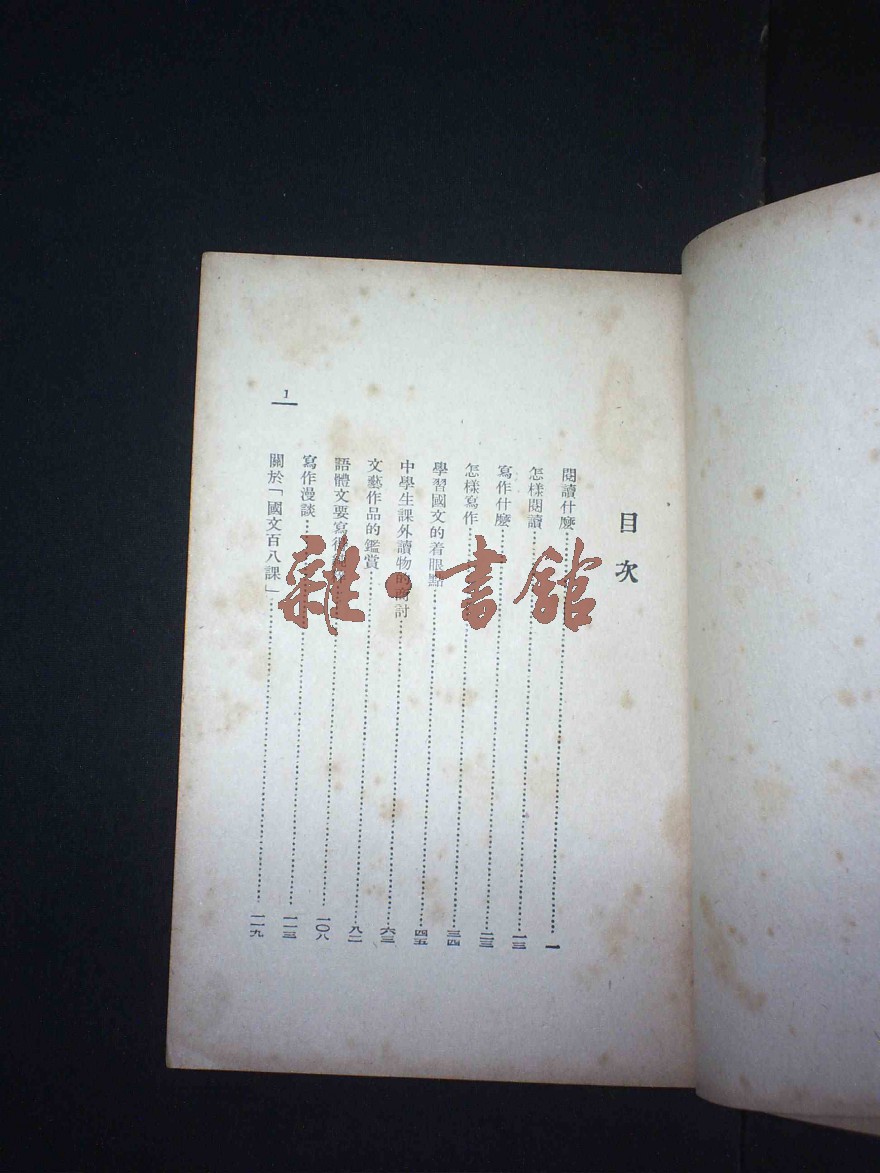 目次
閱讀什麼……一
怎樣閱讀……一三
寫作什麼……二三
怎樣寫作……三四
學習國文的着眼點……四五
中學生課外讀物的商討……六三
文藝作品的鑑賞……八二
語體文要寫得……一〇八
寫作漫談……一一三
關於「國文百八課」……一一九
1
雜·書館